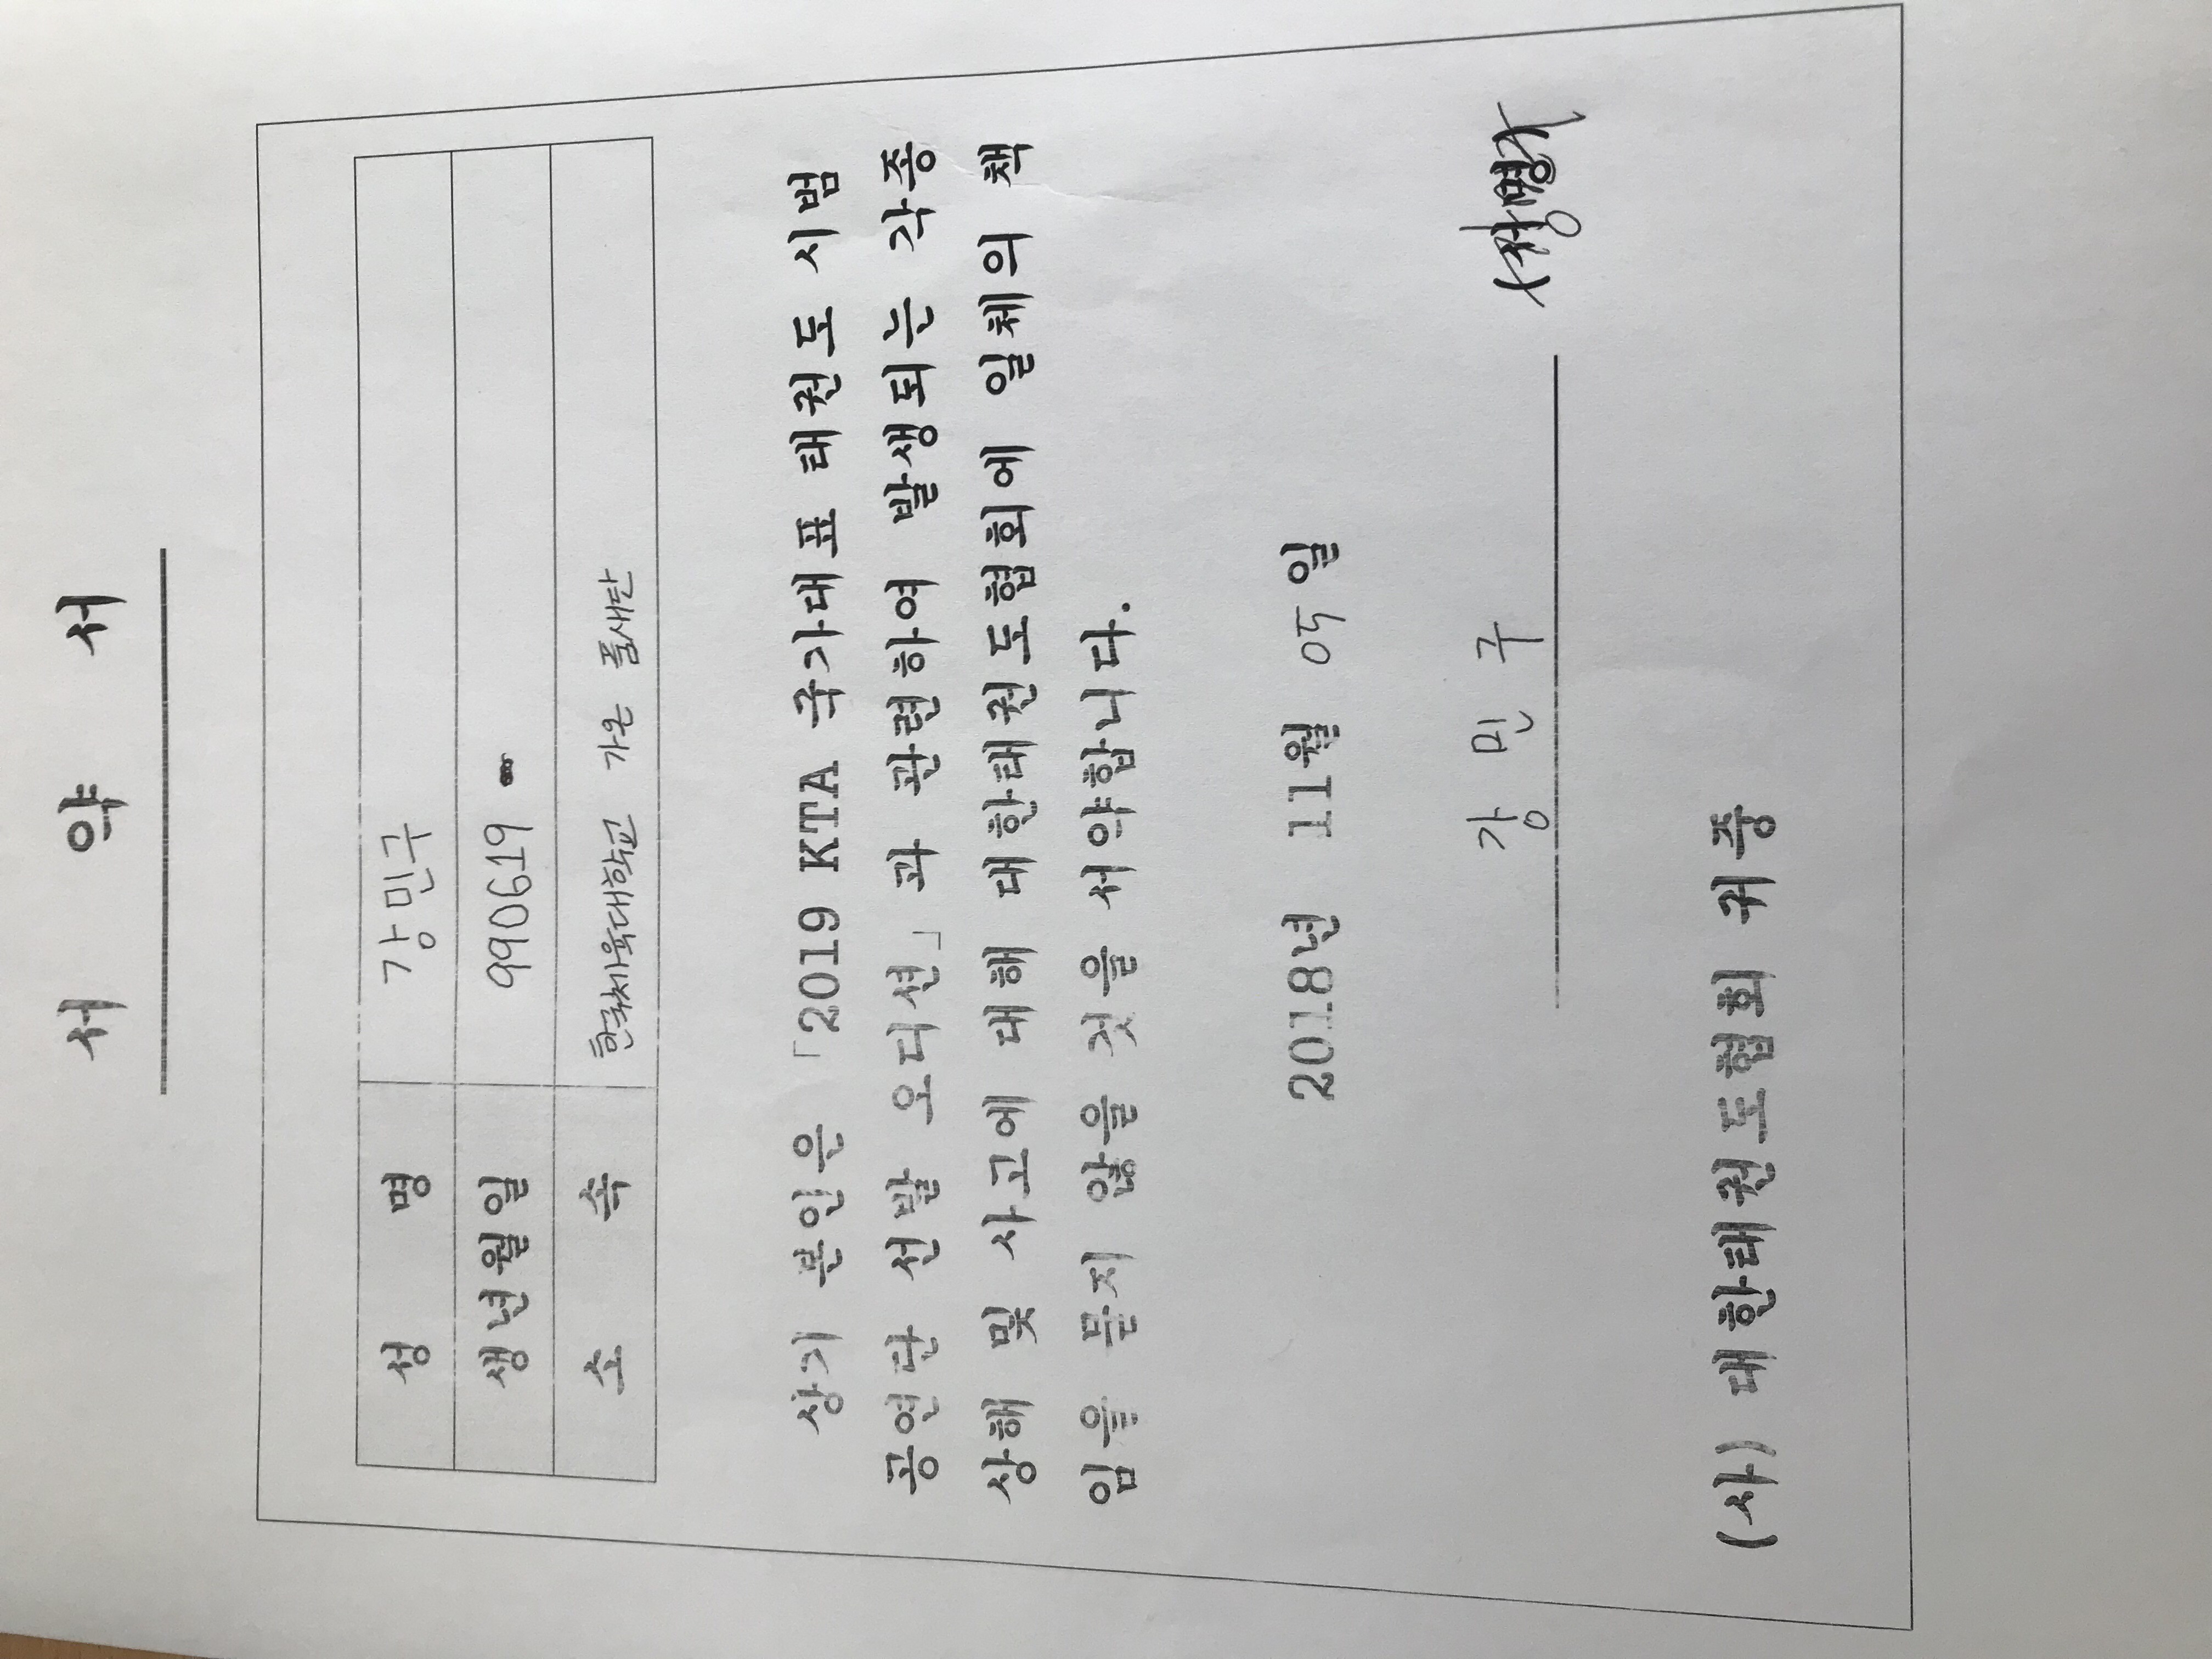 서 약 서
성 명 강민구
생년월일 990619
소 속 한국체육대학교 가온 품새단
상기 본인은 「2019 KTA 국가대표 태권도 시범
공연단 선발 오디션」과 관련하여 발생되는 각종
상해 및 사고에 대해 대한태권도협회에 일체의 책
임을 묻지 않을 것을 서약합니다.
2018년 11월 05일
강 민 구
(사) 대한태권도협회 귀중